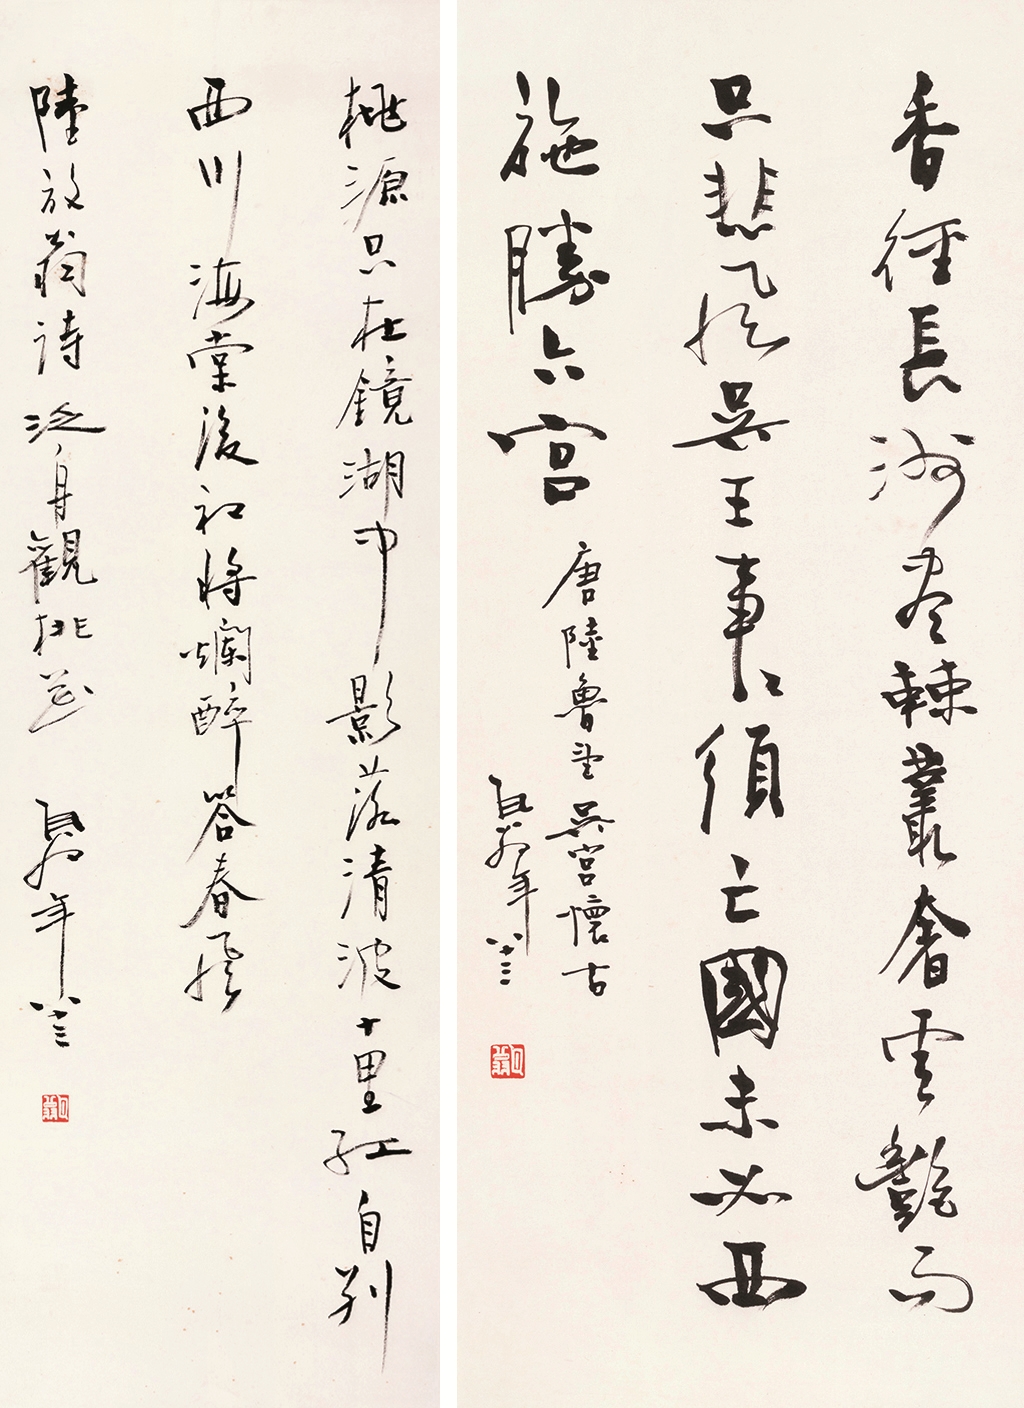 香徑長洲盡棘叢奢雲豔雨
只悲風吳王事〻須亡國未必西
施勝六宮
唐陸魯望吳宮懷古
年八十三
桃源只在鏡湖中影落清波十里紅自別
西川海棠後初將爛醉答春風
陸放翁詩泛舟觀桃花
年八十三